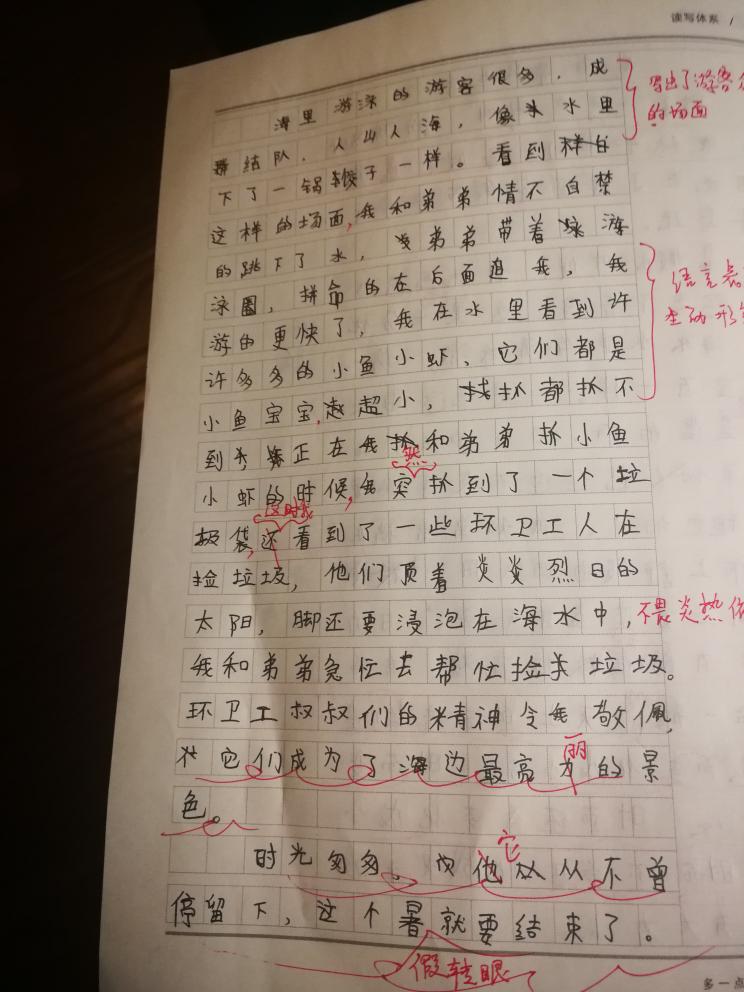 读写体系 /
海里游泳的游客很多，成
写出了游客众
的场面
群结队，人山人海，像水里
下了一锅饺子一样。看到
这样的场面，我和弟弟情不自禁
的跳下了水，弟弟带着游
泳圈，拼命的在后面追我，我
语言表
生动形
游的更快了，我在水里看到许
许多多的小鱼小虾，它们都是
小鱼宝宝，超小，抓都抓不
到，正在我和弟弟抓小鱼
然
小虾的时候，我突抓到了一个垃
这时我
圾袋，还看到了一些环卫工人在
捡垃圾，他们顶着炎炎烈日的
太阳，脚还要浸泡在海水中，不畏炎热
我和弟弟急忙去帮忙捡垃圾。
环卫工叔叔们的精神令我敬佩，
丽
它们成为了海边最高为的景
色。
它
时光匆匆。他从不曾
停留下，这个暑就要结束了。
假转眼
多一点